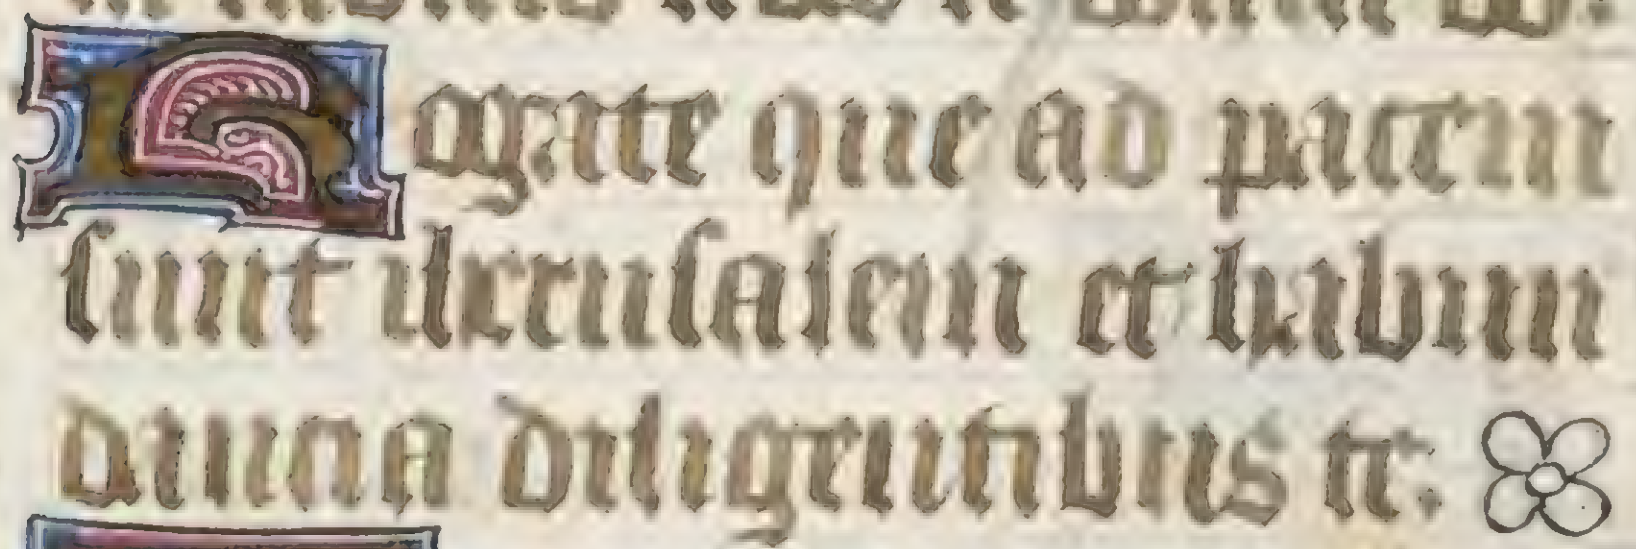 Rogate que ad pacem
sunt iherusalem et habun
dancia diligentibus te.